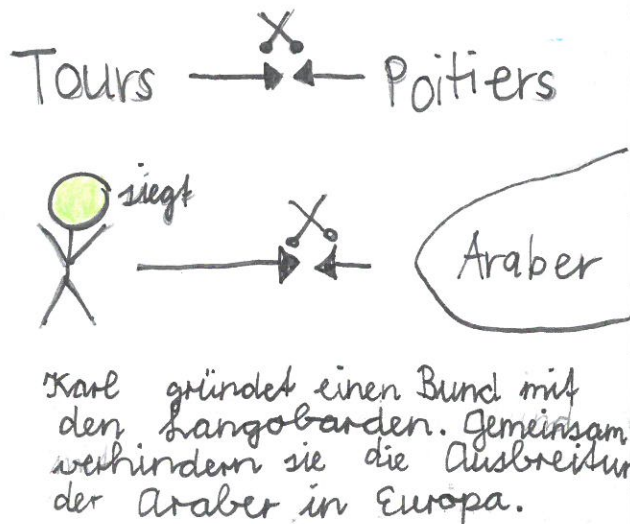 Tours Poitiers
siegt
Araber
Karl gründet einen Bund mit
den Langobarden. Gemeinsam
verhindern sie die Ausbreitun
der Araber in Europa.